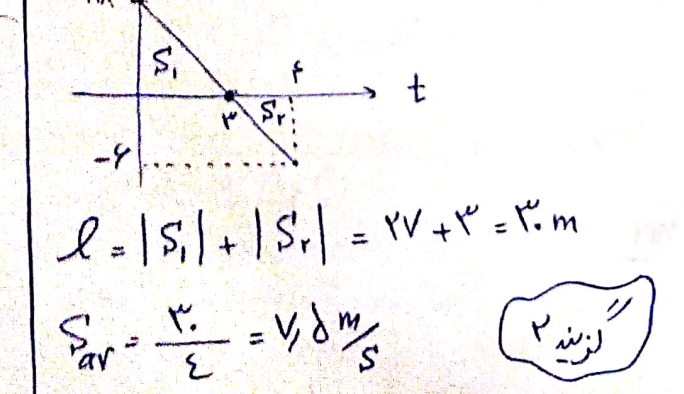 S۱
۴
t
۳
S۲
-۶
l = |S۱| + |S۲| = ۲۷ + ۳ = ۳۰ m
S av = ۳۰ / ٤ = ۷,۵ m/s
گزینه ۲